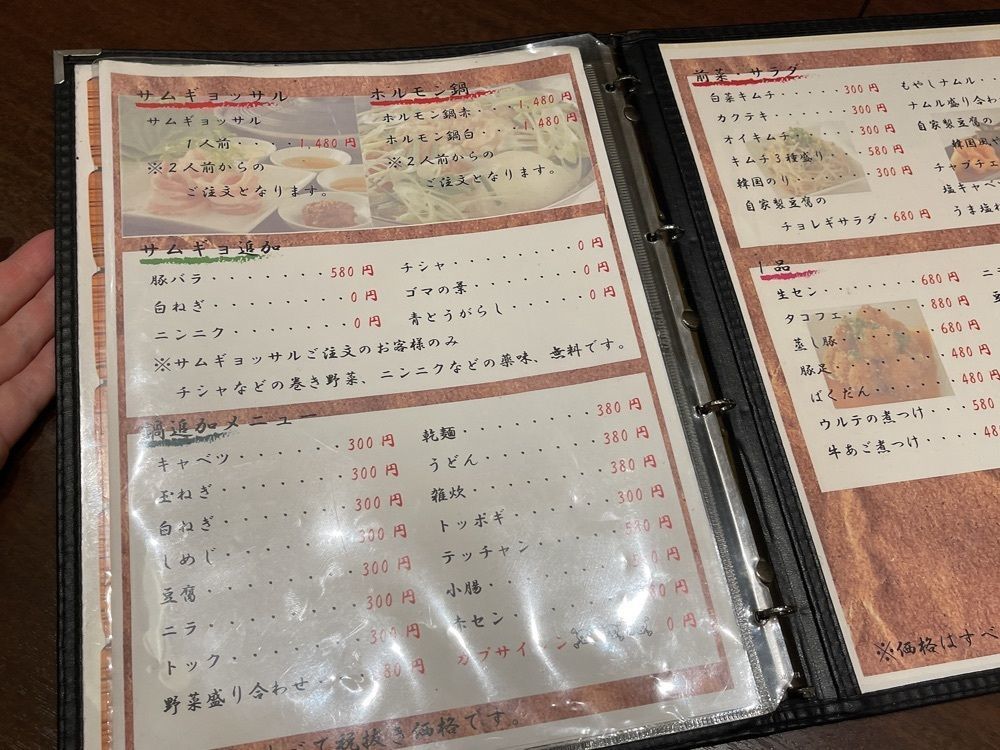 サムギョッサル
サムギョッサル
1人前・・・・・1,480円
※2人前からの
ご注文となります。
ホルモン鍋
ホルモン鍋赤・・・1,480円
ホルモン鍋白・・・1,480円
※2人前からの
ご注文となります。
サムギョ追加
豚バラ・・・・・・・・580円
白ねぎ・・・・・・・・0円
ニンニク・・・・・・・0円
チシャ・・・・・・・・0円
ゴマの葉・・・・・・・0円
青とうがらし・・・・・0円
※サムギョッサルご注文のお客様のみ
チシャなどの巻き野菜、ニンニクなどの薬味、無料です。
鍋追加メニュー
キャベツ・・・・・・・300円
玉ねぎ・・・・・・・・300円
白ねぎ・・・・・・・・300円
しめじ・・・・・・・・300円
豆腐・・・・・・・・・300円
ニラ・・・・・・・・・300円
トック・・・・・・・・300円
野菜盛り合わせ・・・80円
乾麺・・・・・・・・・380円
うどん・・・・・・・・380円
雑炊・・・・・・・・・380円
トッポギ・・・・・・・300円
テッチャン・・・・・・580円
小腸・・・・・・・・・80円
センセン・・・・・・・80円
カプサイシン 0円
べて税抜き価格です。
前菜・サラダ
白菜キムチ・・・・・300円
カクテキ・・・・・・300円
オイキムチ・・・・・300円
キムチ3種盛り・・・580円
韓国のり・・・・・・300円
自家製豆腐の
チョレギサラダ・680円
もやしナムル・・
ナムル盛り合わ
自家製豆腐の
韓国風や
チャプチェ
塩キャベ
うま塩
1品
生セン・・・・・・・680円
タコフェ・・・・・・880円
蒸し豚・・・・・・・680円
豚足・・・・・・・・480円
ばくだん・・・・・・480円
ウルテの煮つけ・・・580
牛あご煮つけ・・・・48
※価格はすべ